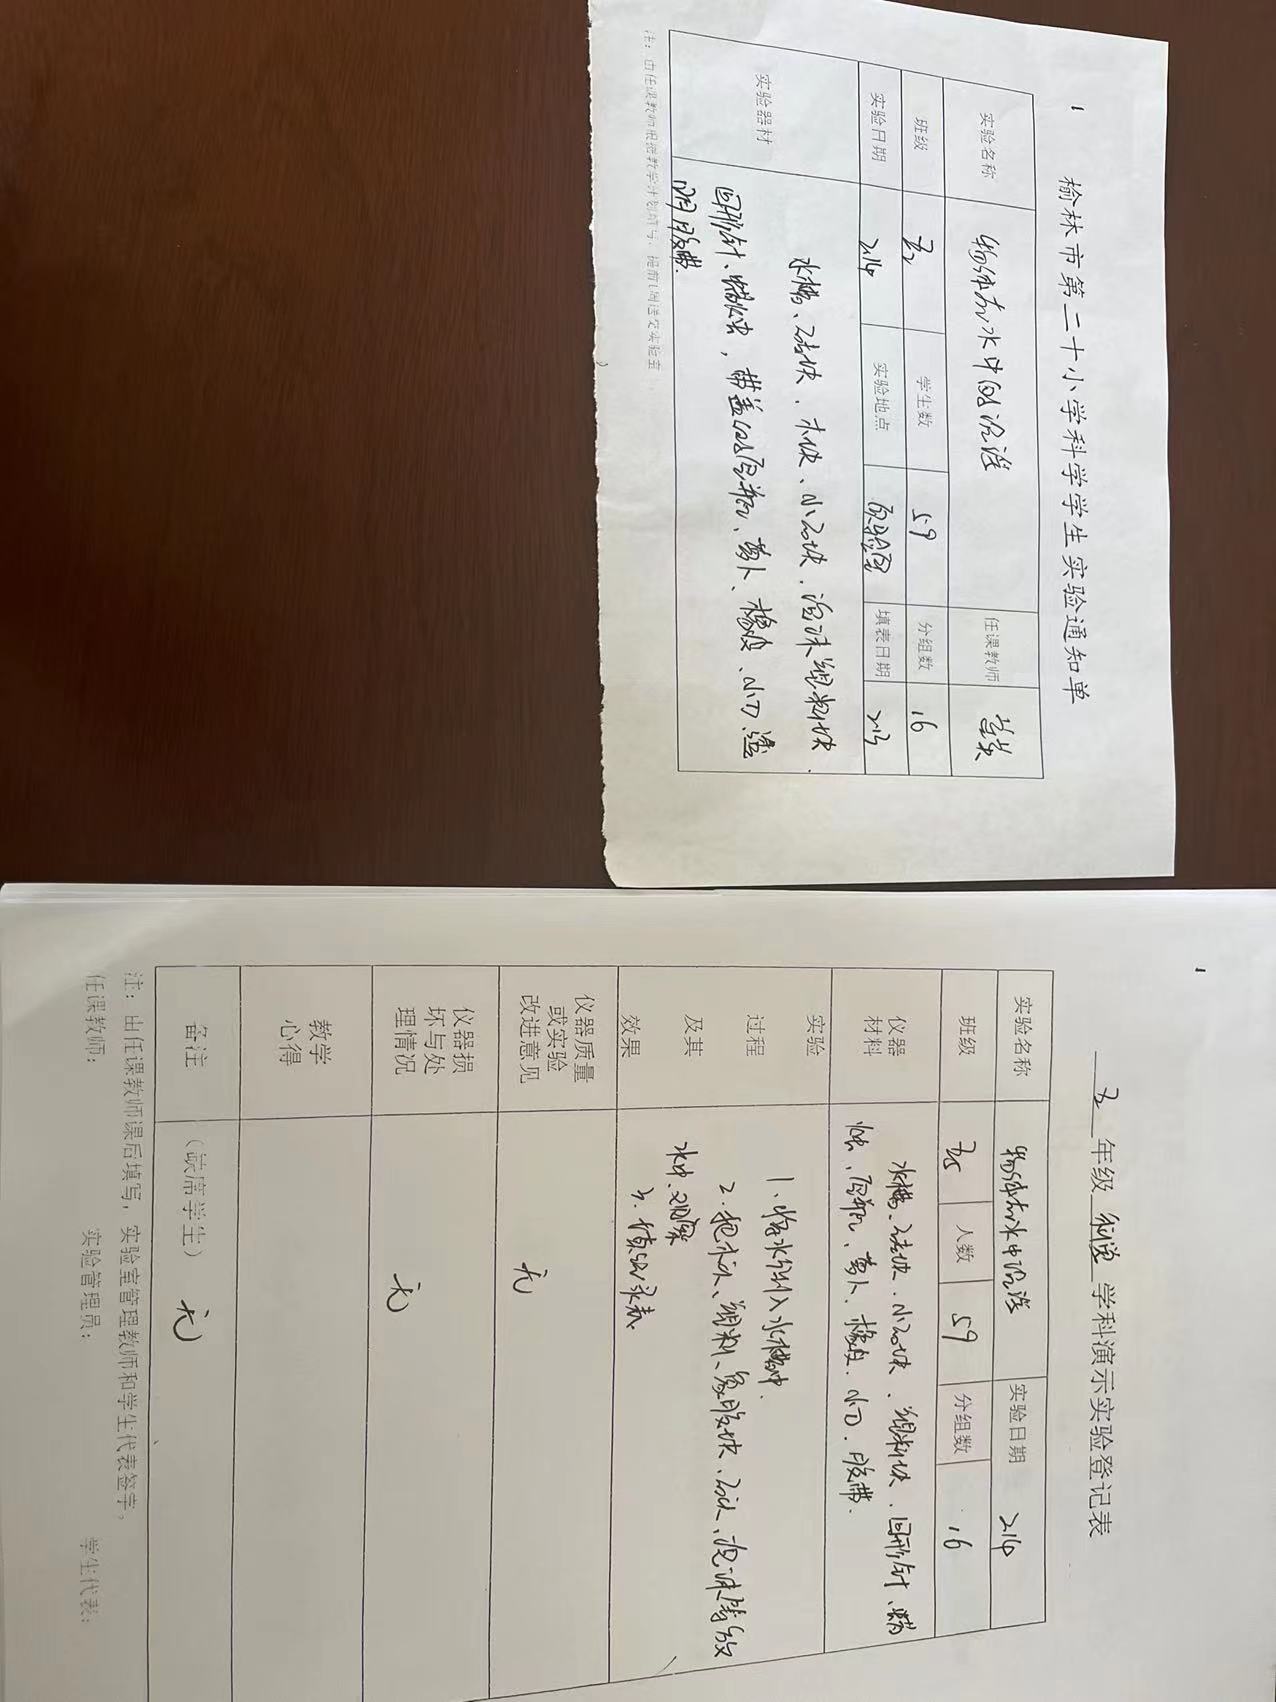 1
榆林市第二十小学科学学生实验通知单
实验名称 物体在水中的沉浮 任课教师
班级 学生数 59 分组数 16
实验日期 2.14 实验地点 实验室 填表日期 2.13
实验器材 水槽、石块、木块、小石块、泡沫塑料块、
回形针、蜡烛、带盖的空瓶、萝卜、橡皮、小刀、透
明胶带
注：由任课教师根据教学计划填写，提前1周送交实验室
1
年级 科学 学科演示实验登记表
实验名称 物体在水中沉浮 实验日期 2.14
班级 人数 59 分组数 16
仪器材料 水槽、石块、小石块、塑料块、回形针、蜡
烛、空瓶、萝卜、橡皮、小刀、胶带.
实验过程及其效果 1、将水倒入水槽中.
2、把木头、塑料、橡胶块、石头、泡沫等放
水中,观察
3、填写记录表.
仪器质量或实验改进意见 无
仪器损坏与处理情况 无
教学心得
备注 （缺席学生） 无
注：由任课教师课后填写，实验室管理教师和学生代表签字。
任课教师： 实验管理员： 学生代表：